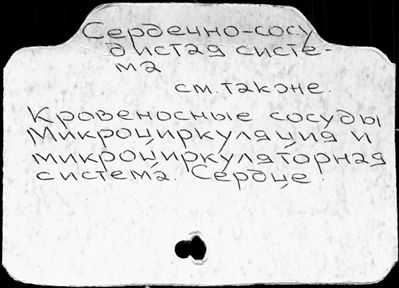 Сердечно-сосу
дистая систе-
ма
см. также.
Кровеносные сосуды
Микроциркуляция и
микроциркуляторная
система. Сердце.